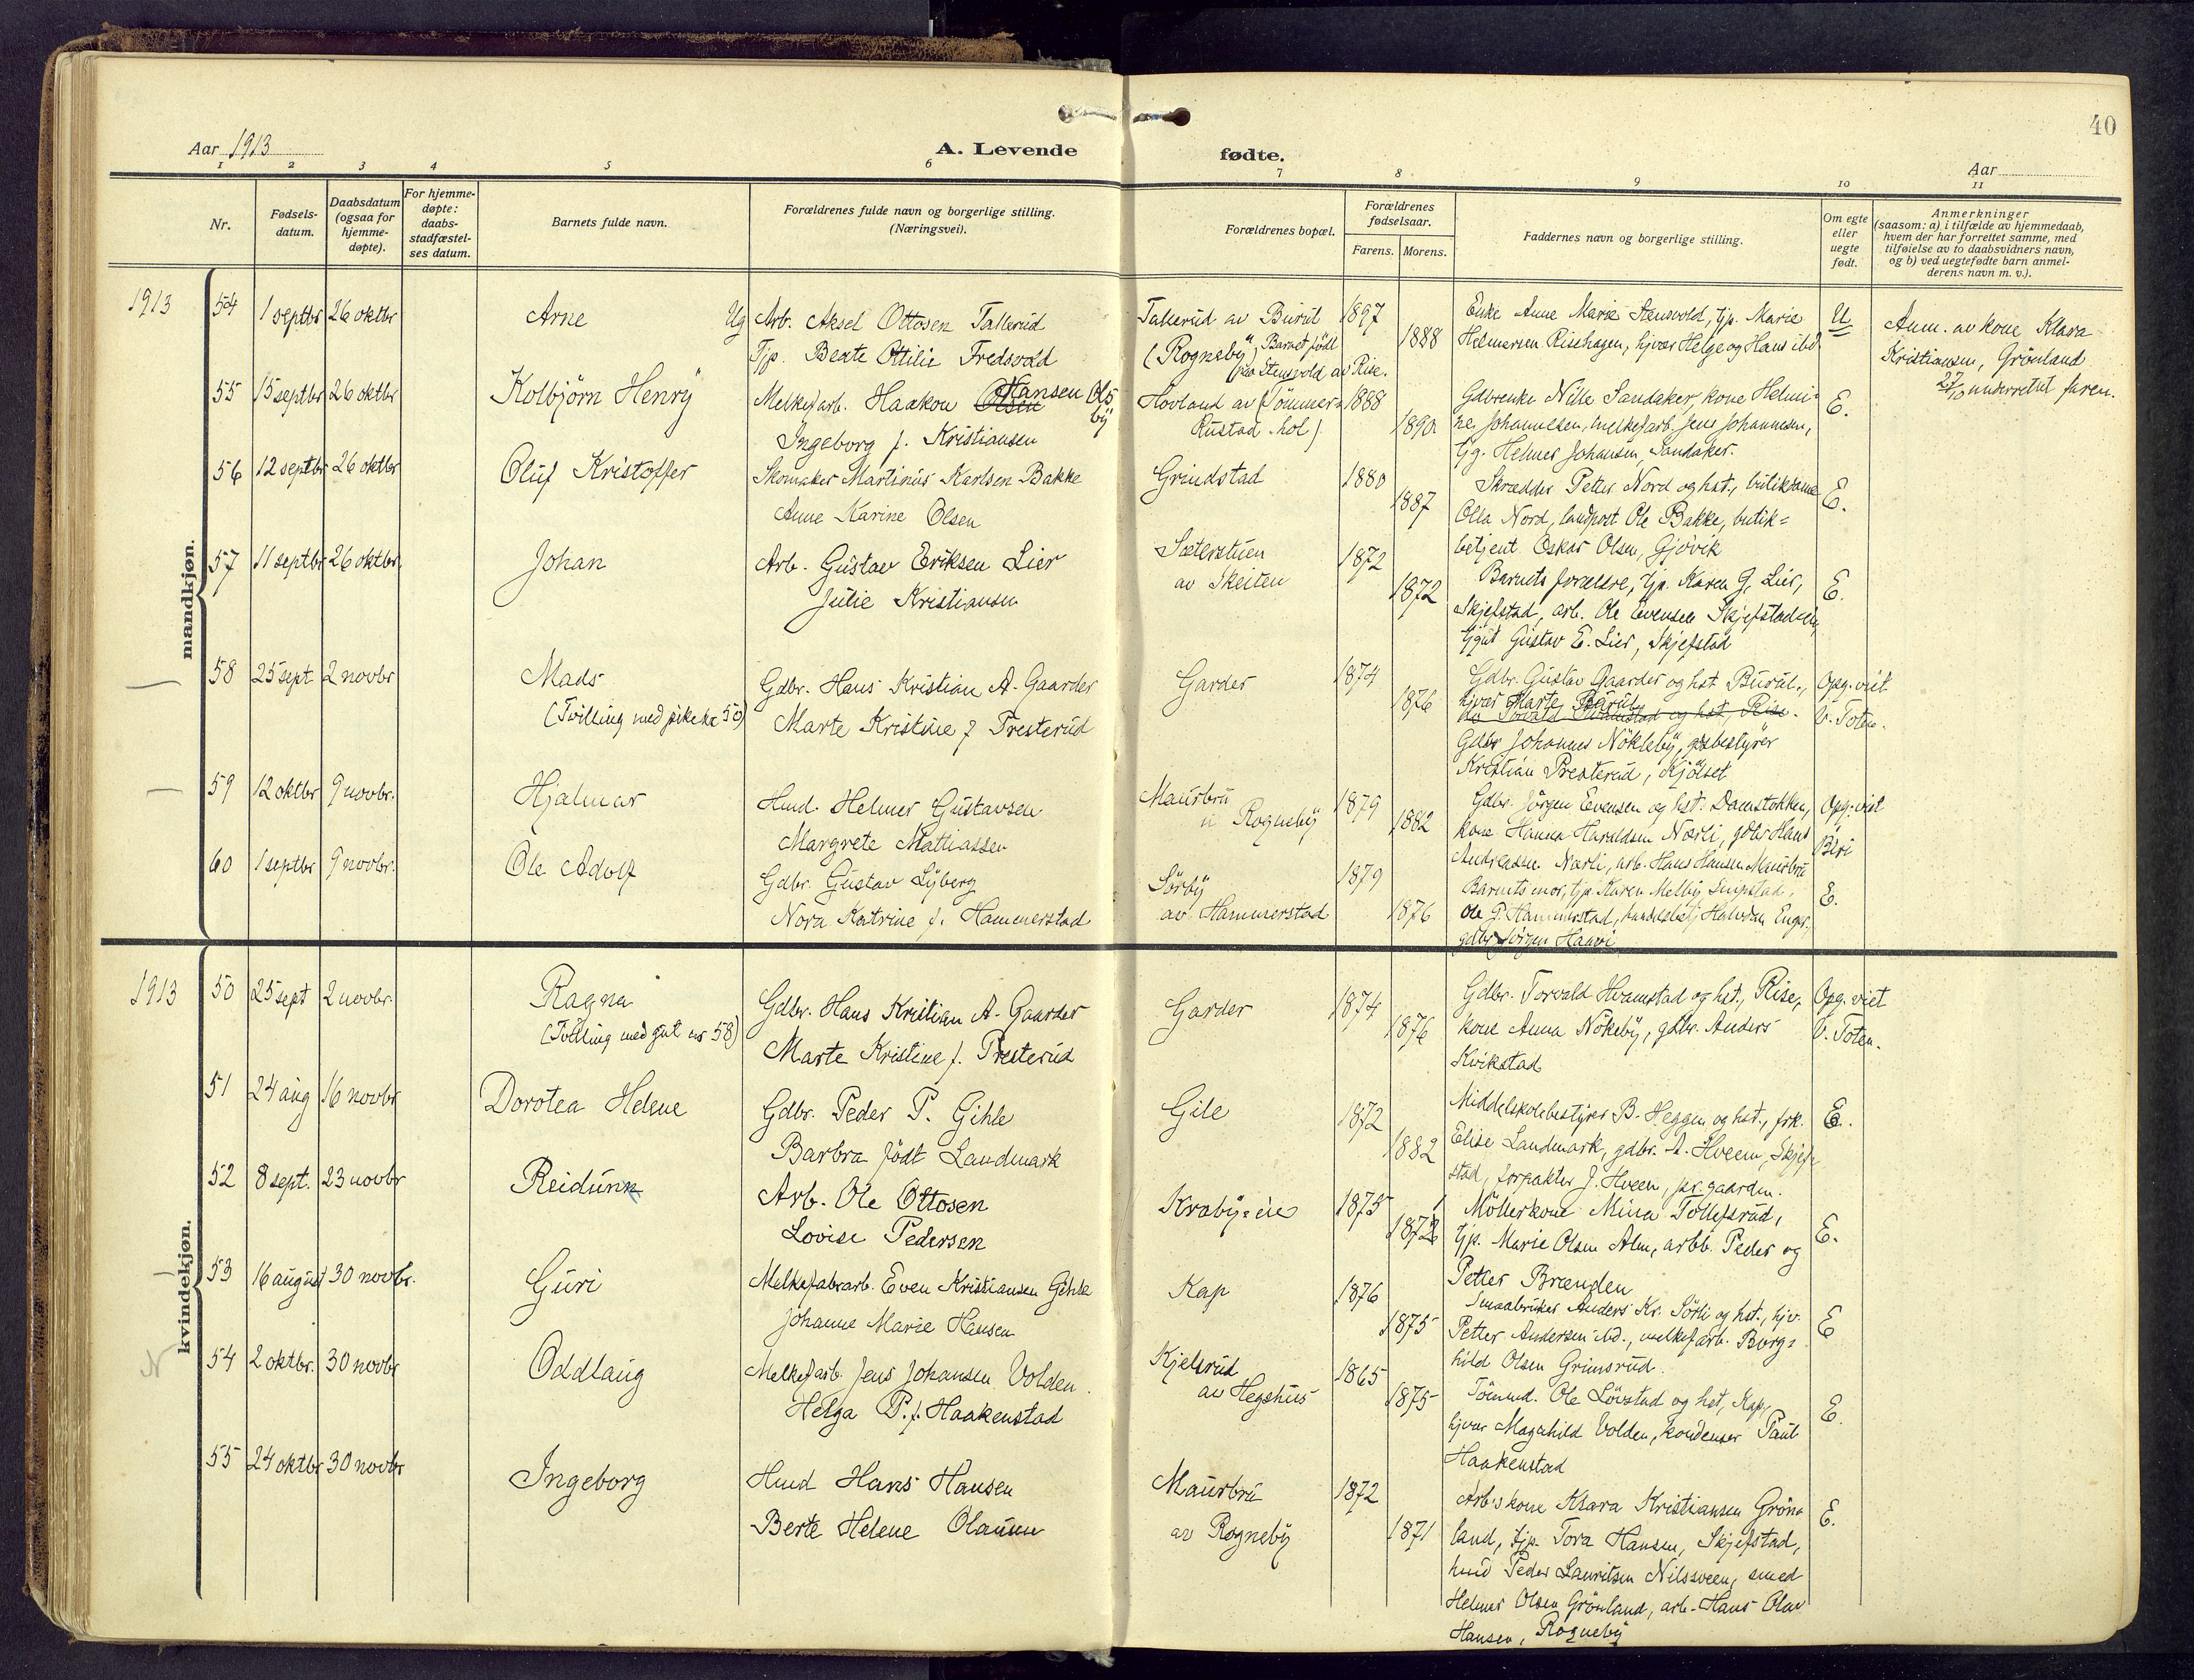 40
Aar 1913
A. Levende fødte.
Aar
1 2 3 4 5 6 7 8 9 10 11
Nr.
Fødsels-
datum.
Daabsdatum
(ogsaa for
hjemme-
døpte).
For hjemme-
døpte:
daabs-
stadfæstel-
ses datum.
Barnets fulde navn.
Forældrenes fulde navn og borgerlige stilling.
(Næringsvei).
Forældrenes bopæl.
Forældrenes
fødselsaar.
Farens. Morens.
Faddernes navn og borgerlige stilling.
Om egte
eller
uegte
født.
Anmerkninger
(saasom: a) i tilfælde av hjemmedaab,
hvem der har forrettet samme, med
tilføielse av to daabsvidners navn,
og b) ved uegtefødte barn anmel-
derens navn m. v.).
mandkjøn.
1913 54 1 septbr 26 oktbr Arne
Ug Arb. Aksel Ottosen Tallerud
Tjp. Beate Ottilie Fredsvold
Tallerud av Burul
(Rogneby) Barnet født
på Stensvold av Rise.
1897 1888
Enke Anne Marie Stensvold, tjp. Marie
Helmersen Risehagen, hjvær Helge og Hans ibd
U
Anm. av kone Klara
Kristiansen, Grönland
27/10 underrettet faren.
55 15 septbr 26 oktbr Kolbjörn Henry
Melkefarb. Haakon Olsen Hansen Ols
by
Ingeborg f. Kristiansen
Hovland av (Sömmer-
Rustad hol)
1888 1890
Gdbrenke Nille Sandaker, kone Helmi-
ne Johannesen, melkefarb. Jens Johannesen,
Tjg. Helmer Johansen, Sandaker.
E.
56 12 septbr 26 oktbr Oluf Kristoffer
Skomaker Martinus Karlsen Bakke
Anne Karine Olsen
Grindstad
1880 1887
Skrædder Petter Nord og hst.,
Olla Nord, landpost Ole Bakke, butik=
betjent Oskar Olsen, Gjövik
E.
57 11 septbr 26 oktbr. Johan
Arb. Gustav Eriksen Lier
Julie Kristiansen
Sæterstuen
av Skeiten
1872 1872
Barnets forældre, tjp. Karen G. Lier,
Skjefstad, arb. Ole Evensen
Tjgut Gustav E. Lier, Skjefstad
E.
58 25 sept 2 novbr Mads
(Tvilling med pike nr 50)
Gdbr. Hans Kristian A. Gaarder
Marte Kristine f Presterud
Garder
1874 1876
Gdbr. Gustav Gaarder og hst Burul.,
hjvær Marte Burul,
Torvald Hvamstad og hst, Rise.
Gdbr Johannes Nökleby, gdsbestyrer
Kristian Presterud, Kjölset
Opg. viet
V. Toten.
59 12 oktbr 9 novbr. Hjalmar
Hmd. Helmer Gustavsen
Margrete Mattiassen
Maurbru
u Rogneby
1879 1882
Gdbr. Jörgen Evensen og hst. Damstokken,
kone Hanna Haraldsen Nærli, gdbr Hans
Andreassen Nærli, arb. Hans Hansen Maurbru
Opg. viet
Biri
60 1 septbr 9 novbr. Ole Adolf
Gdbr. Gustav Lyberg
Nora Katrine f. Hammerstad
Sörby
av Hammerstad
1879 1876
Barnets mor, tjp. Karen Melby
Ole P. Hammerstad, Halvdan Enger,
gdbr Jörgen
E.
kvindekjøn.
1913 50 25 sept 2 novbr. Ragna
(Tvilling med gut nr 58)
Gdbr. Hans Kristian A. Gaarder
Marte Kristine f. Presterud
Garder
1874 1876
Gdbr. Torvald Hvamstad og hst., Rise,
kone Anna Nökleby, gdbr. Anders
Kvikstad
Opg. viet
V. Toten.
51 24 aug 16 novbr Dorotea Helene
Gdbr. Peder P. Gihle
Barbra födt Landmark
Gile
1872 1882
Middelskolebestyrer B. Heggen og hst., frk.
Elise Landmark, gdbr. A. Hveem, Skjef-
stad, forpakter J. Hveem, pr.gaarden.
E.
52 8 sept. 23 novbr Reidunn
Arb. Ole Ottosen
Lovise Pedersen
Kraby=eie
1875 1872
Möllerkone Mina Tollefsrud,
tjp. Marie Olsen Alm, arbb. Peder og
Petter Brænden
E.
53 16 august 30 novbr. Guri
Melkefabrarb. Even Kristiansen Gihle
Johanne Marie Hansen
Kap
1876 1875
Smaabruker Anders Kr. Sörli og hst., hjv.
Petter Andersen ibd., melkefarb. Borg=
hild Olsen Grimsrud.
E
N 54 2 oktbr. 30 novbr Oddlaug
Melkefarb. Jens Johansen Volden
Helga P. f. Haakenstad
Kjelsrud
av Hegshus
1865 1875
Tömmd. Ole Lövstad og hst, Kap,
hjvær Magnhild Volden, kondenser Paul
Haakenstad
E.
55 24 oktbr 30 novbr Ingeborg
Hmd Hans Hansen
Berte Helene Olaussen
Maurbru
av Rogneby
1872 1871
Arb.s kone Klara Kristiansen Grön=
land, tjp. Tora Hansen, Skjefstad,
hmd Peder Lauritsen Nilssveen, smed
Helmer Olsen Grönland, arb. Hans Olav
Hansen, Rogneby
E.